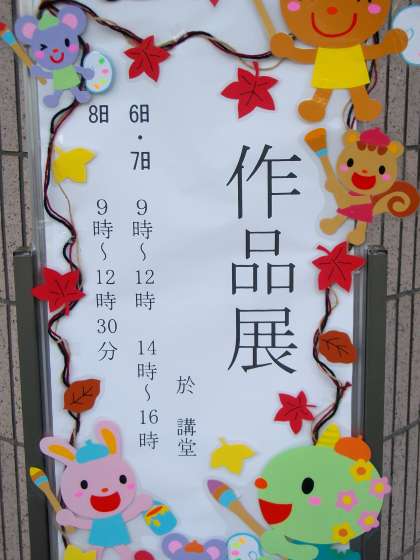 作品展
於 講堂
6日・7日 9時～12時 14時～16時
8日 9時～12時30分